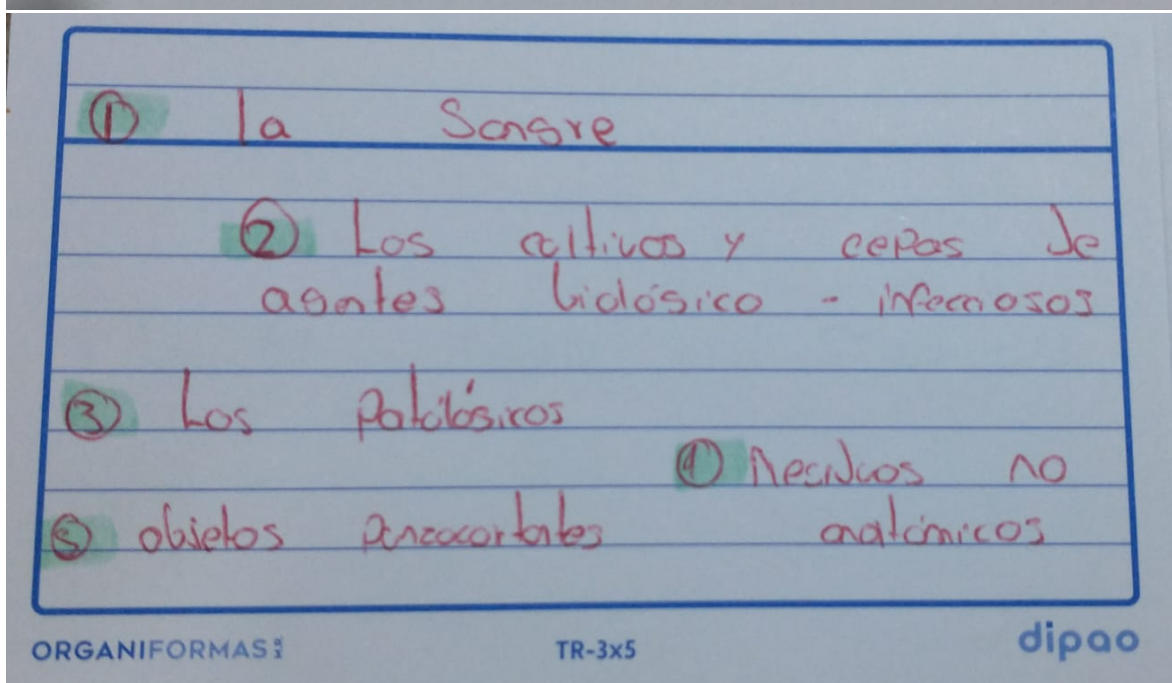 ① la Sangre
② Los cultivos y cepas de
agentes biológico - infecciosos
③ Los Patológicos
④ Reciduos no
anatómicos
⑤ objetos punzocortantes
ORGANIFORMAS
TR-3x5
dipao